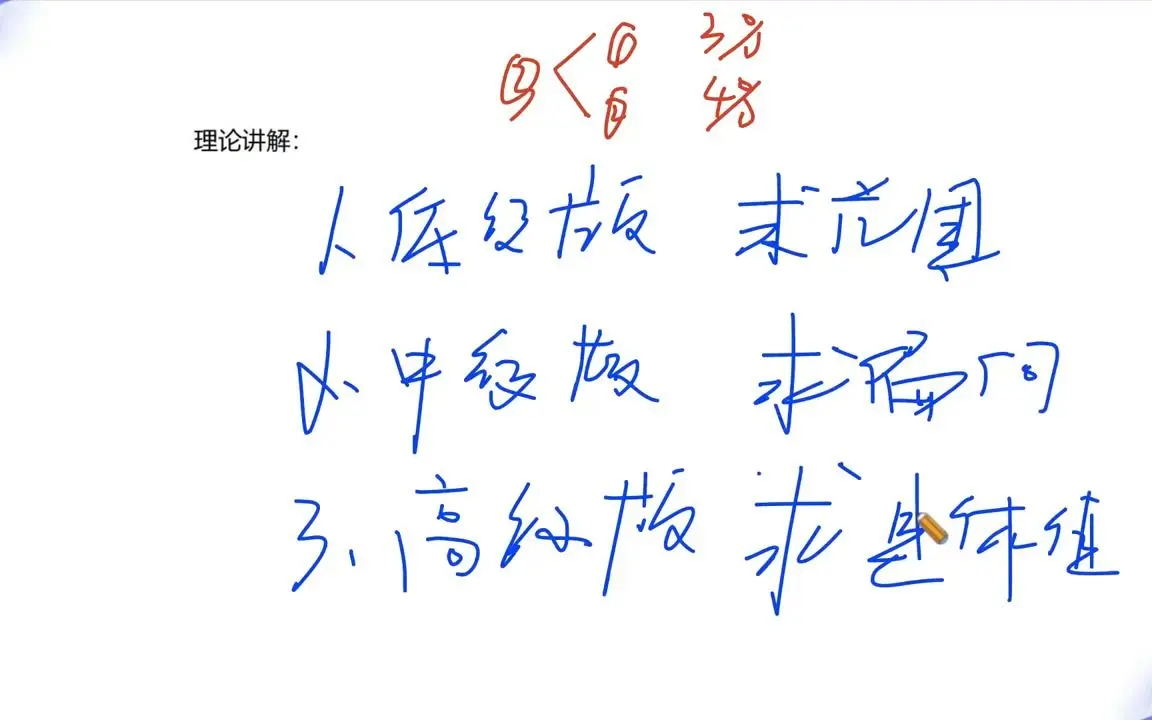 ② < ① 3%
② 4%
理论讲解：
1、低级版 求范围
2、中级版 求偏向
3、高级版 求具体值